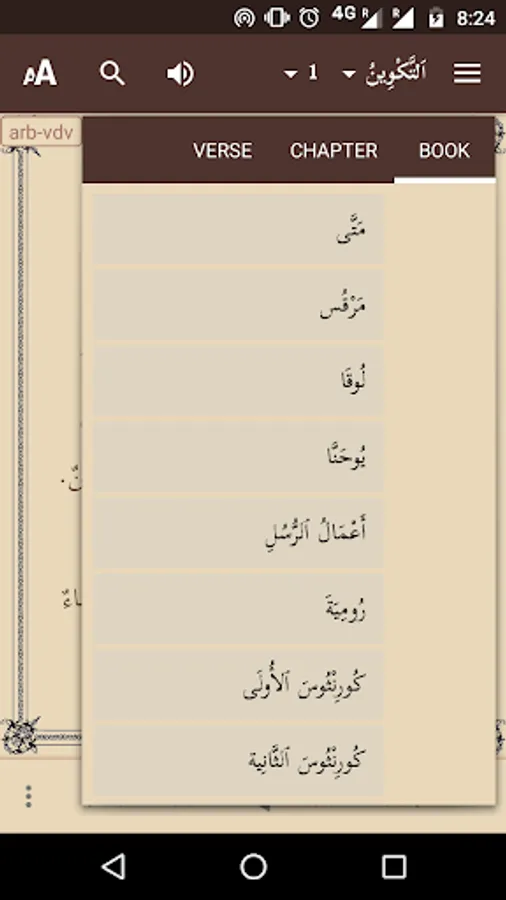 4G R R 8:24
اَلتَّكْوِينُ 1
arb-vdv
VERSE CHAPTER BOOK
مَتَّى
مَرْقُس
لُوقَا
يُوحَنَّا
أَعْمَالُ ٱلرُّسُلِ
رُومِيَةَ
كُورِنْثُوسَ ٱلأُولَى
كُورِنْثُوسَ ٱلثَّانِية